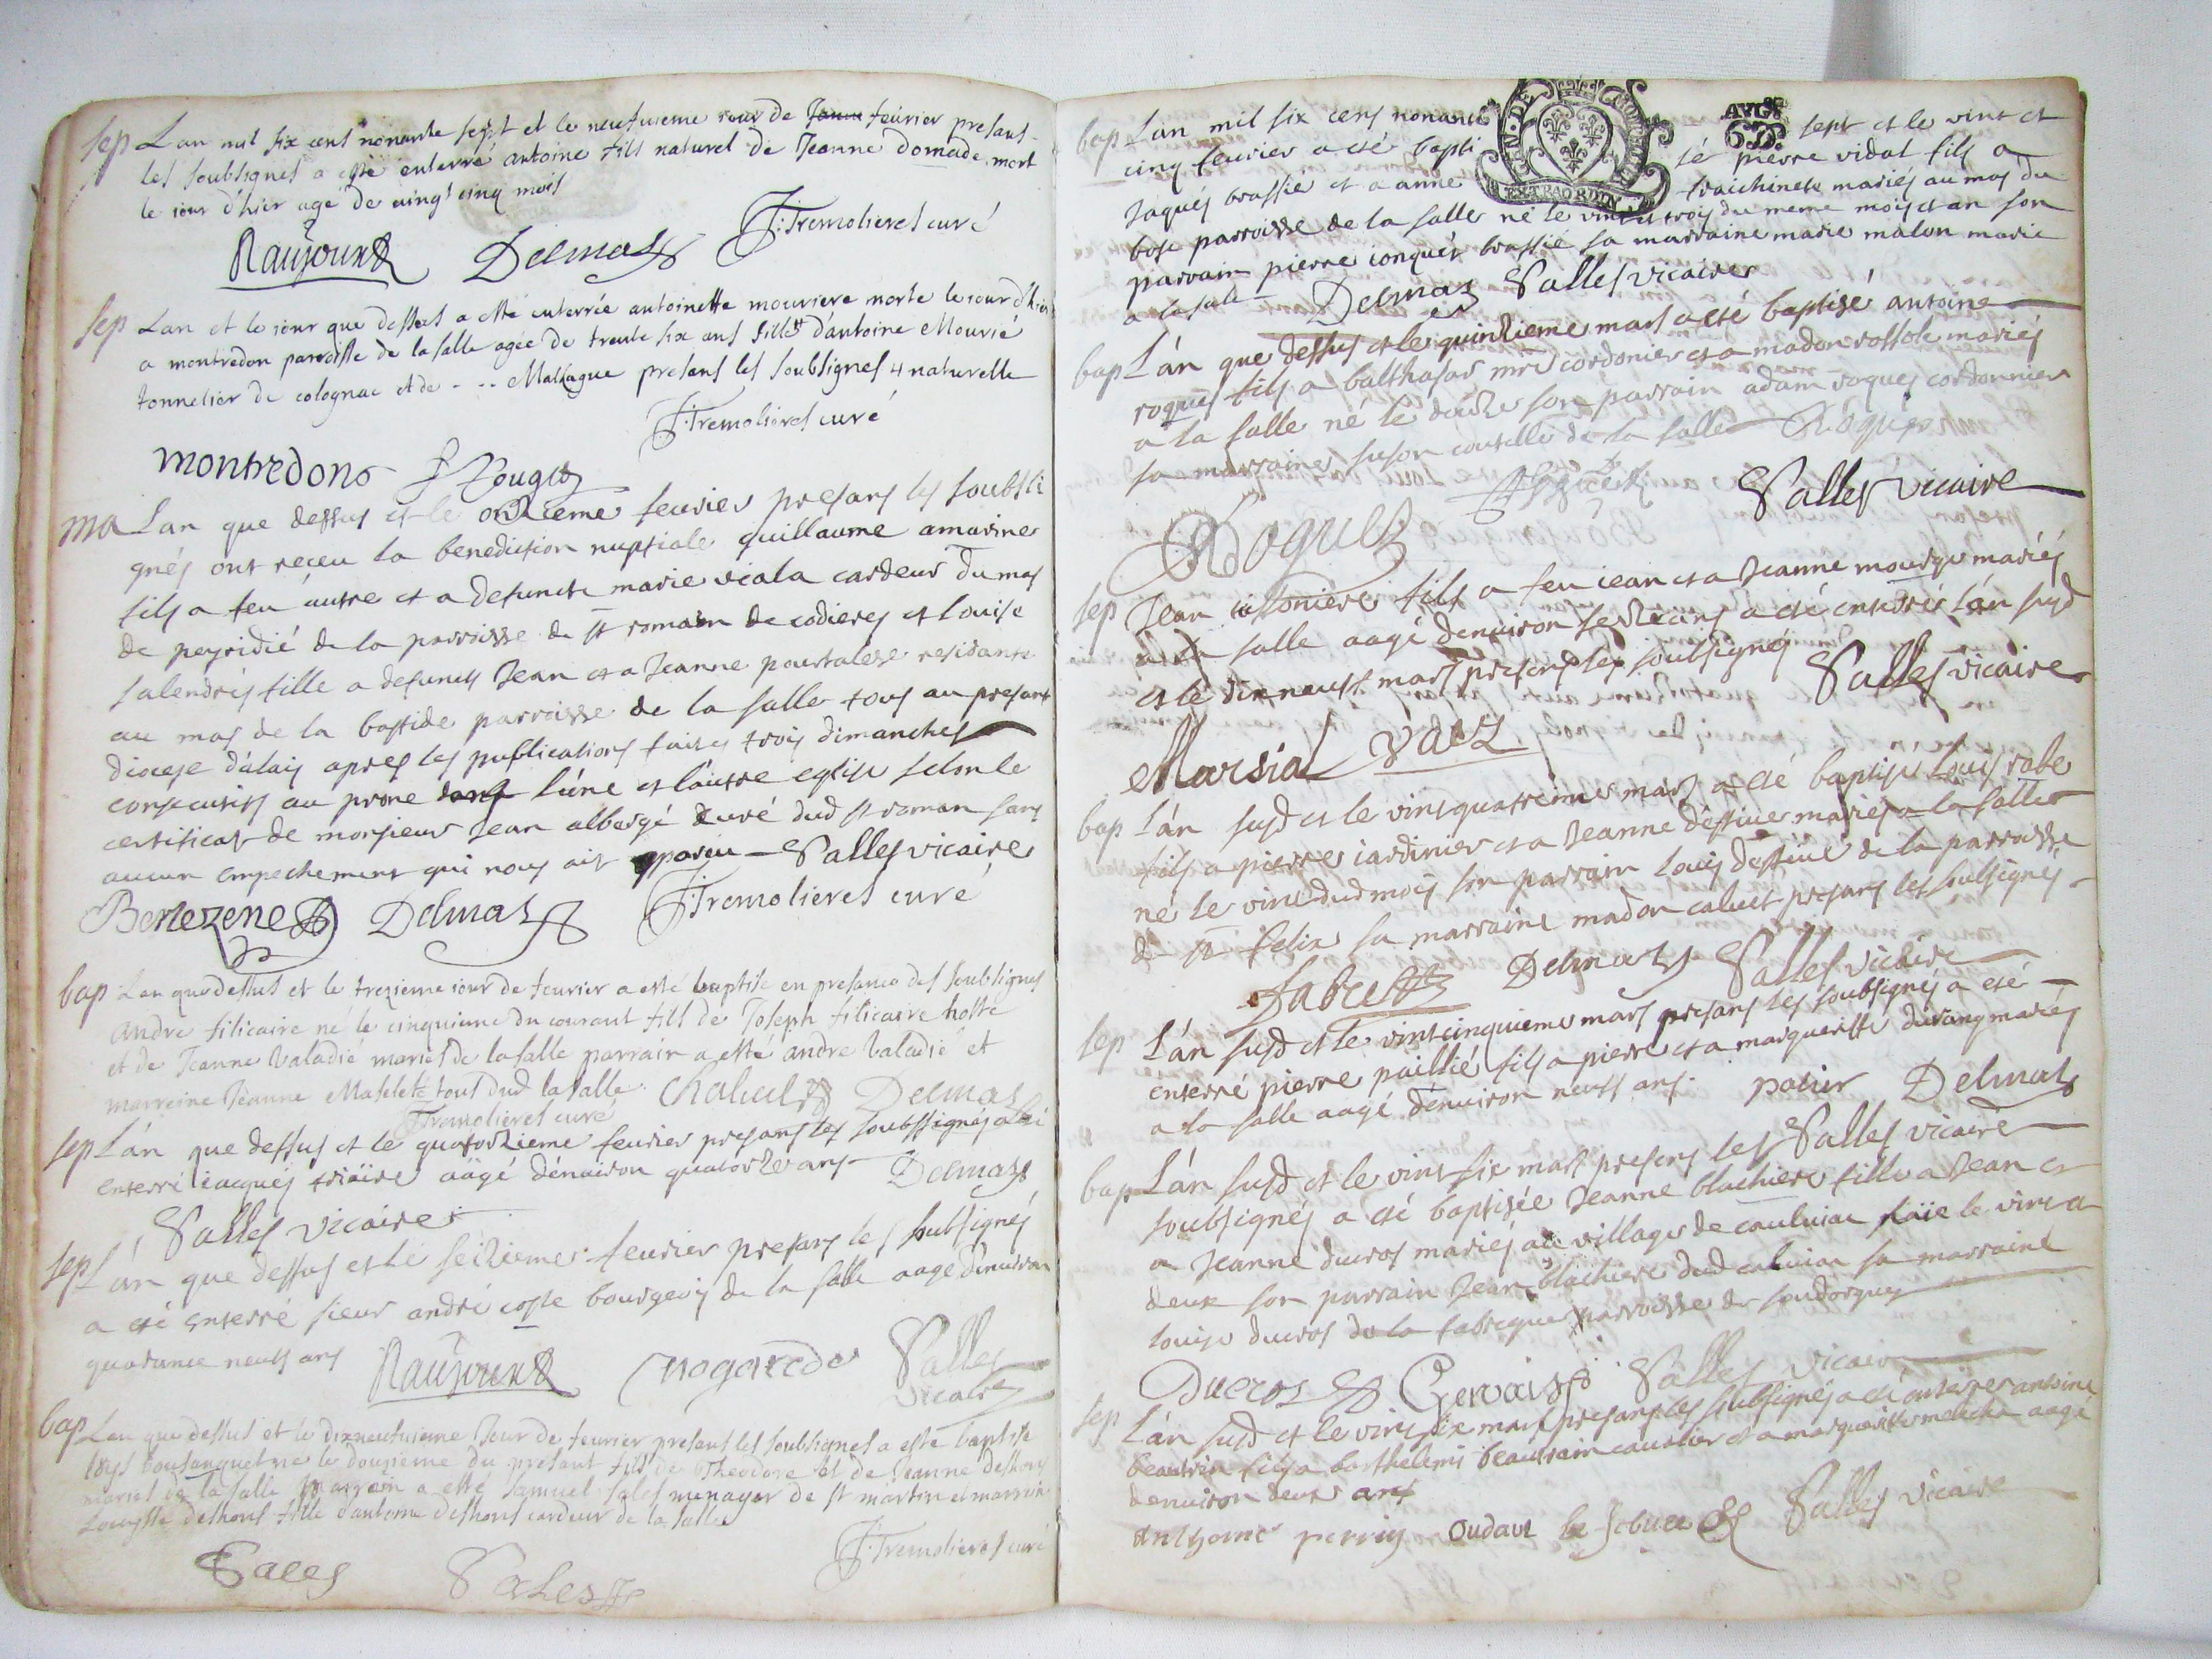 sep Lan mil six cens nonante sept et le neufuieme jour de feurier presans
les soubsignes a esté enterré antoine fils naturel de Jeanne Domade mort
le iour d'hier agé de vingt cinq mois
Raujoux Delmas F: Tremolieres curé
sep Lan et le iour que dessus a esté enterrée antoinette mouriere morte le iour d'hier
a montredon parroisse de la salle agée de trente six ans fille d'antoine Mourié
tonnelier de colognac et de - .. Massague presans les soubsignes 4 naturelle
F: Tremolieres curé
montredons
ma Lan que dessus et le onzieme feurier presans les soubsi
gnés ont receu la benediction nuptiale guillaume amarines
fils a feu autre et a defuncte marie viala cardeur du mas
de peyridié de la parroisse de st romain de codieres et louise
salendres fille a defuncts Jean et a Jeanne pourtalese residante
au mas de la bastide parroisse de la salle tous au presant
diocese d'alais apres les publications faites trois dimanches
consecutifs au prone l'une et l'autre eglise selon le
certificat de monsieur Jean albergé curé dud st roman sans
aucun empechement qui nous ait apareu Salles vicaire
Berlezene Delmas F: Tremolieres curé
bap Lan que dessus et le trezieme iour de feurier a esté baptise en presance des soubsignes
andre filicaire né le cinquieme du courant fils de Joseph filicaire hoste
et de Jeanne Valadié maries de la salle parrain a esté andre Valadié et
marreine Jeanne tous dud la salle. Delmas
Tremolieres curé
sep L'an que dessus et le quatorzieme feurier presans les soubssignés a été
enterré iacques aagé d'enuiron quatorze ans Delmas
Salles vicaire
sep L'an que dessus et le seizieme feurier presans les soubsignés
a été enterré sieur andré coste bourgeois de la salle aagé d'enuiron
quarante neuf ans Raujoux nogarede Salles
vicaire
bap Lan que dessus et le dixneufuieme Jour de feurier presans les soubsignes a esté baptise
loys bousanquet ne le douzieme du presant fils de Theodore et de Jeanne deshons
maries de la salle parrain a esté Samuel sales menager de st martin et marrine
Louyse deshons fille d'antoine deshons cardeur de la salle
F: Tremolieres curé
Sales Sales
bap L'an mil six cens nonante sept et le vint et
cinq feurier a été bapti sé pierre vidal fils a
Jaques brassié et a anne fraichinete mariés au mas du
bosc parroisse de la salle né le vint et trois du meme mois et an son
parrain pierre ionquet brassié sa marraine marie malon marié
a la sale Delmas Salles vicaire
EXTRAORDIN
bap L'an que dessus et le quinzieme mars a été baptisé antoine
roques fils a balthasar mre cordonier et a madon rossole mariés
a la salle né le douze son parrain adam roques cordonnier
sa marraine suson coutelle de la salle Roques
Roques Salles vicaire
sep Jean fils a feu iean et a Jeanne mourgue mariés
a la salle aagé d'enuiron seze ans a été enterré l'an susd
et le dix neuf mars presens les soubsignés Salles vicaire
Marsial
bap L'an susd et le vint quatreieme mars a été baptisé Louis
fils a pierre iardinier et a Jeanne d'essiue mariés a la salle
né le vint dud mois son parrain Louis d'essiue de la parroisse
de st felix sa marraine madon caluet presans les soubsignés
Delmas Salles vicaire
sep L'an susd et le vint cinquieme mars presans les soubsignés a été
enterré pierre paillié fils a pierre et a marguerite durang mariés
a la salle aagé d'enuiron neuf ans. Delmas
Salles vicaire
bap L'an susd et le vint six mars presens les
soubsignés a été baptisée Jeanne blachiere fille a Jean et
a Jeanne ducros mariés au village de cauluiac née le vint a
deux son parrain Jean blachiere dud caluiac sa marraine
louise ducros de la fabregue parroisse de soudorgues
Ducros Gervais Salles vicaire
sep L'an susd et le vint six mars presans les soubsignés a été enterré antoine
fils a barthelemi et a marguerite aagé
d'enuiron deux ans
Anthoine perrin Salles vicaire